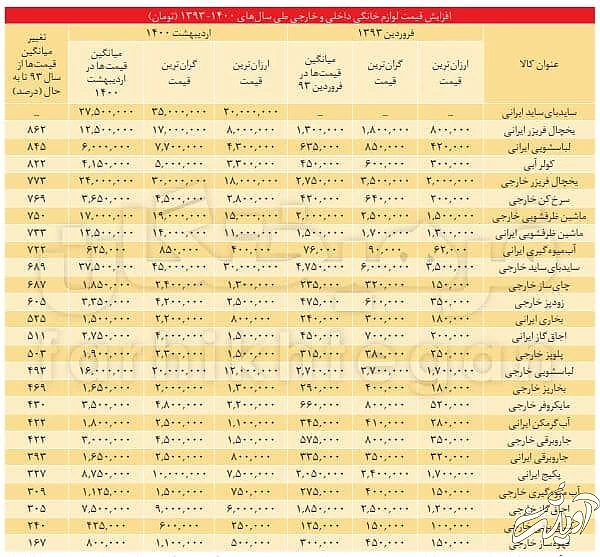 افزایش قیمت لوازم خانگی داخلی و خارجی طی سال‌های ۱۴۰۰-۱۳۹۳ (تومان)
عنوان کالا فروردین ۱۳۹۳ اردیبهشت ۱۴۰۰ تغییر میانگین قیمت‌ها از سال ۹۳ تا به حال (درصد)
ارزان‌ترین قیمت گران‌ترین قیمت میانگین قیمت‌ها در فروردین ۹۳ ارزان‌ترین قیمت گران‌ترین قیمت میانگین قیمت‌ها در اردیبهشت ۱۴۰۰
سایدبای ساید ایرانی – – – ۲۰,۰۰۰,۰۰۰ ۳۵,۰۰۰,۰۰۰ ۲۷,۵۰۰,۰۰۰ –
یخچال فریزر ایرانی ۸۰۰,۰۰۰ ۱,۸۰۰,۰۰۰ ۱,۳۰۰,۰۰۰ ۸,۰۰۰,۰۰۰ ۱۷,۰۰۰,۰۰۰ ۱۲,۵۰۰,۰۰۰ ۸۶۲
لباسشویی ایرانی ۴۲۰,۰۰۰ ۸۵۰,۰۰۰ ۶۳۵,۰۰۰ ۴,۳۰۰,۰۰۰ ۷,۷۰۰,۰۰۰ ۶,۰۰۰,۰۰۰ ۸۴۵
کولر آبی ۳۰۰,۰۰۰ ۶۰۰,۰۰۰ ۴۵۰,۰۰۰ ۳,۳۰۰,۰۰۰ ۵,۰۰۰,۰۰۰ ۴,۱۵۰,۰۰۰ ۸۲۲
یخچال فریزر خارجی ۲,۰۰۰,۰۰۰ ۳,۵۰۰,۰۰۰ ۲,۷۵۰,۰۰۰ ۱۸,۰۰۰,۰۰۰ ۳۰,۰۰۰,۰۰۰ ۲۴,۰۰۰,۰۰۰ ۷۷۳
سرخ‌کن خارجی ۲۰۰,۰۰۰ ۶۴۰,۰۰۰ ۴۲۰,۰۰۰ ۲,۸۰۰,۰۰۰ ۴,۵۰۰,۰۰۰ ۳,۶۵۰,۰۰۰ ۷۶۹
ماشین ظرفشویی خارجی ۱,۵۰۰,۰۰۰ ۲,۵۰۰,۰۰۰ ۲,۰۰۰,۰۰۰ ۱۵,۰۰۰,۰۰۰ ۱۹,۰۰۰,۰۰۰ ۱۷,۰۰۰,۰۰۰ ۷۵۰
ماشین ظرفشویی ایرانی ۱,۳۰۰,۰۰۰ ۱,۷۰۰,۰۰۰ ۱,۵۰۰,۰۰۰ ۱۱,۰۰۰,۰۰۰ ۱۴,۰۰۰,۰۰۰ ۱۲,۵۰۰,۰۰۰ ۷۳۳
آب‌میوه‌گیری ایرانی ۶۲,۰۰۰ ۹۰,۰۰۰ ۷۶,۰۰۰ ۴۰۰,۰۰۰ ۸۵۰,۰۰۰ ۶۲۵,۰۰۰ ۷۲۲
سایدبای ساید خارجی ۳,۵۰۰,۰۰۰ ۶,۰۰۰,۰۰۰ ۴,۷۵۰,۰۰۰ ۳۰,۰۰۰,۰۰۰ ۴۵,۰۰۰,۰۰۰ ۳۷,۵۰۰,۰۰۰ ۶۸۹
چای‌ساز خارجی ۱۵۰,۰۰۰ ۳۲۰,۰۰۰ ۲۳۵,۰۰۰ ۱,۳۰۰,۰۰۰ ۲,۴۰۰,۰۰۰ ۱,۸۵۰,۰۰۰ ۶۸۷
زودپز خارجی ۳۵۰,۰۰۰ ۶۰۰,۰۰۰ ۴۷۵,۰۰۰ ۲,۵۰۰,۰۰۰ ۴,۲۰۰,۰۰۰ ۳,۳۵۰,۰۰۰ ۶۰۵
بخاری ایرانی ۱۸۰,۰۰۰ ۳۰۰,۰۰۰ ۲۴۰,۰۰۰ ۸۰۰,۰۰۰ ۲,۲۰۰,۰۰۰ ۱,۵۰۰,۰۰۰ ۵۲۵
اجاق‌گاز ایرانی ۲۰۰,۰۰۰ ۷۰۰,۰۰۰ ۴۵۰,۰۰۰ ۱,۵۰۰,۰۰۰ ۴,۰۰۰,۰۰۰ ۲,۷۵۰,۰۰۰ ۵۱۱
پلوپز خارجی ۲۵۰,۰۰۰ ۳۸۰,۰۰۰ ۳۱۵,۰۰۰ ۱,۵۰۰,۰۰۰ ۲,۳۰۰,۰۰۰ ۱,۹۰۰,۰۰۰ ۵۰۳
لباسشویی خارجی ۱,۷۰۰,۰۰۰ ۳,۷۰۰,۰۰۰ ۲,۷۰۰,۰۰۰ ۱۲,۰۰۰,۰۰۰ ۲۰,۰۰۰,۰۰۰ ۱۶,۰۰۰,۰۰۰ ۴۹۳
بخارپز خارجی ۱۸۰,۰۰۰ ۴۰۰,۰۰۰ ۲۹۰,۰۰۰ ۱,۳۰۰,۰۰۰ ۲,۰۰۰,۰۰۰ ۱,۶۵۰,۰۰۰ ۴۶۹
مایکروفر خارجی ۵۲۰,۰۰۰ ۸۰۰,۰۰۰ ۶۶۰,۰۰۰ ۲,۲۰۰,۰۰۰ ۴,۸۰۰,۰۰۰ ۳,۵۰۰,۰۰۰ ۴۳۰
آب‌گرمکن ایرانی ۲۸۰,۰۰۰ ۴۱۰,۰۰۰ ۳۴۵,۰۰۰ ۱,۱۰۰,۰۰۰ ۲,۵۰۰,۰۰۰ ۱,۸۰۰,۰۰۰ ۴۲۲
جاروبرقی خارجی ۳۵۰,۰۰۰ ۸۰۰,۰۰۰ ۵۷۵,۰۰۰ ۱,۵۰۰,۰۰۰ ۴,۵۰۰,۰۰۰ ۳,۰۰۰,۰۰۰ ۴۲۲
جاروبرقی ایرانی ۳۲۰,۰۰۰ ۳۵۰,۰۰۰ ۳۳۵,۰۰۰ ۸۰۰,۰۰۰ ۲,۵۰۰,۰۰۰ ۱,۶۵۰,۰۰۰ ۳۹۳
پکیج ایرانی ۱,۷۰۰,۰۰۰ ۲,۴۰۰,۰۰۰ ۲,۰۵۰,۰۰۰ ۷,۵۰۰,۰۰۰ ۱۰,۰۰۰,۰۰۰ ۸,۷۵۰,۰۰۰ ۳۲۷
آب میوه‌گیری خارجی ۱۵۰,۰۰۰ ۴۰۰,۰۰۰ ۲۷۵,۰۰۰ ۷۵۰,۰۰۰ ۱,۵۰۰,۰۰۰ ۱,۱۲۵,۰۰۰ ۳۰۹
اجاق گاز خارجی ۱,۲۰۰,۰۰۰ ۲,۵۰۰,۰۰۰ ۱,۸۵۰,۰۰۰ ۶,۰۰۰,۰۰۰ ۹,۰۰۰,۰۰۰ ۷,۵۰۰,۰۰۰ ۳۰۵
خارجی ۱۰۰,۰۰۰ ۱۵۰,۰۰۰ ۱۲۵,۰۰۰ ۲۵۰,۰۰۰ ۶۰۰,۰۰۰ ۴۲۵,۰۰۰ ۲۴۰
قهوه‌ساز خارجی ۱۵۰,۰۰۰ ۴۵۰,۰۰۰ ۳۰۰,۰۰۰ ۵۰۰,۰۰۰ ۱,۱۰۰,۰۰۰ ۸۰۰,۰۰۰ ۱۶۷